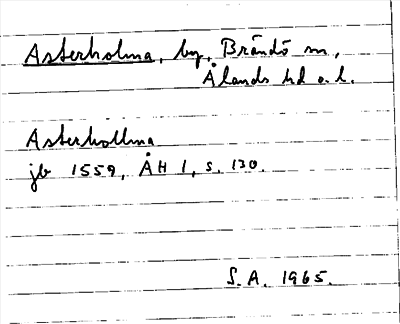 Asterholma, by, Brändö sn,
Ålands hd o. l.
Asterhollma
jb 1559, ÅH 1, s. 130.
S. A. 1965.